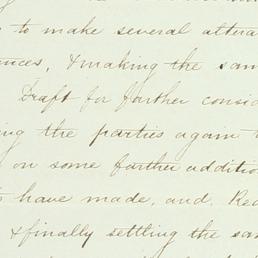 to make several altera
ances, & making the sam
Draft for further consid
ing the parties again
on some further addition
to have made, and. Rea
& finally settling the sam